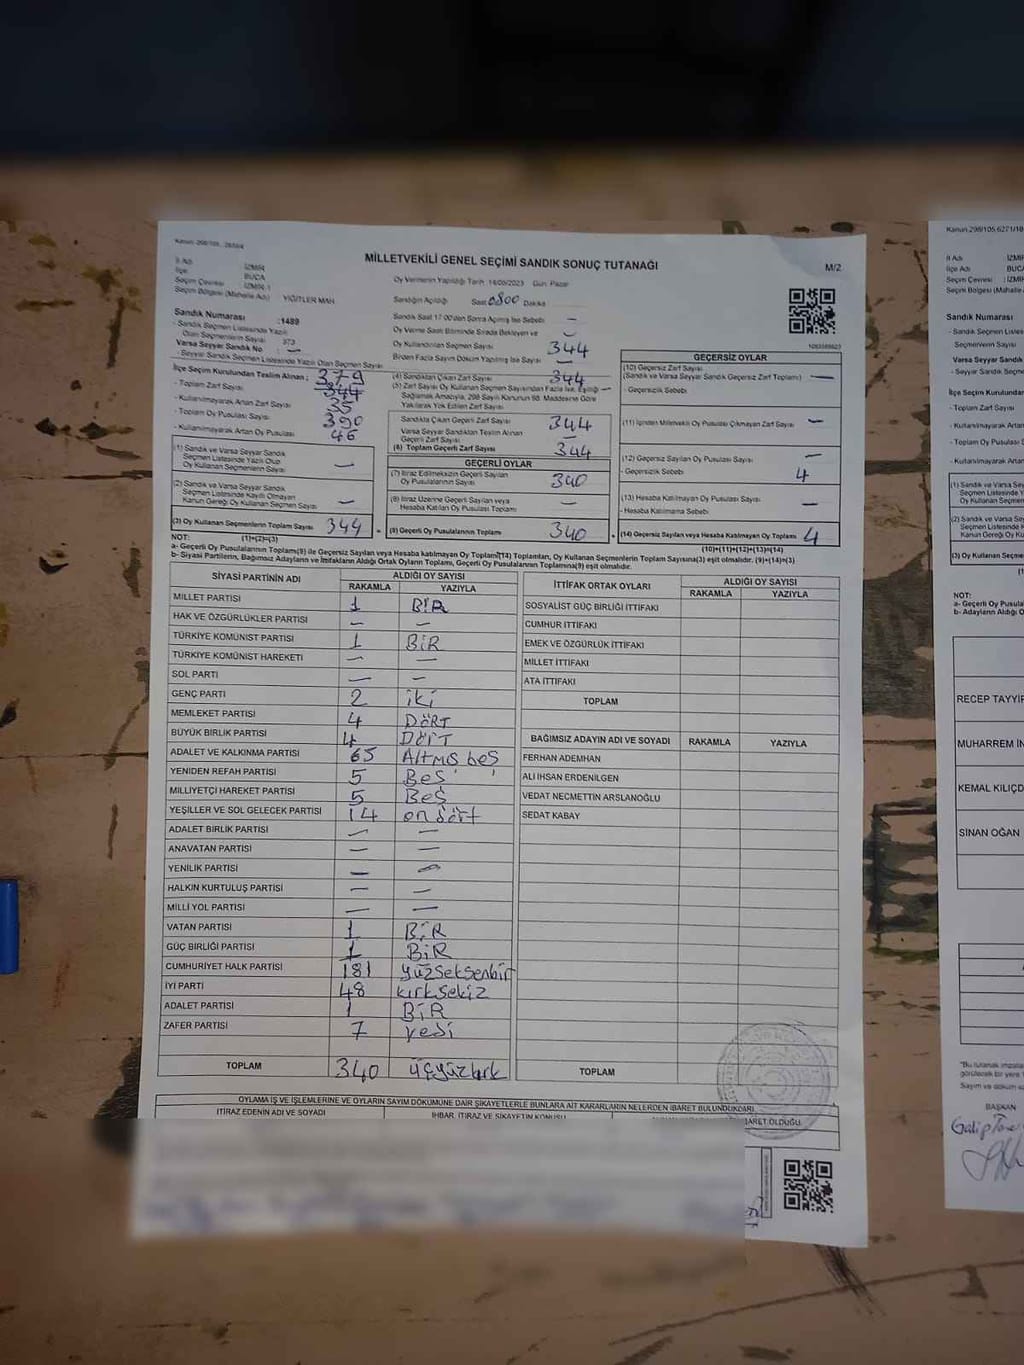 MİLLETVEKİLİ GENEL SEÇİMİ SANDIK SONUÇ TUTANAĞI
M/2
Kanun: 298/105
İl Adı İZMİR
İlçe BUCA
Seçim Çevresi İZMİR 1
Seçim Bölgesi (Mahalle Adı) YİĞİTLER MAH
Oy Vermenin Yapıldığı Tarih Gün: Pazar
Sandığın Açıldığı Saat 0800 Dakika
Sandık Numarası :1489
- Sandık Seçmen Listesinde Yazılı
Olan Seçmenlerin Sayısı 373
Varsa Seyyar Sandık No —
- Seyyar Sandık Seçmen Listesinde Yazılı Olan Seçmen Sayısı
Sandık Saat 17:00'den Sonra Açılmış İse Sebebi —
Oy Verme Saati Bitiminde Sırada Bekleyen ve
Oy Kullandırılan Seçmen Sayısı 344
Birden Fazla Sayım Döküm Yapılmış İse Sayısı —
İlçe Seçim Kurulundan Teslim Alınan ; 379
- Toplam Zarf Sayısı 344
- Kullanılmayarak Artan Zarf Sayısı 35
- Toplam Oy Pusulası Sayısı 390
- Kullanılmayarak Artan Oy Pusulası 46
(1) Sandık ve Varsa Seyyar Sandık
Seçmen Listesinde Yazılı Olup
Oy Kullanan Seçmenlerin Sayısı —
(2) Sandık ve Varsa Seyyar Sandık
Seçmen Listesinde Kayıtlı Olmayan
Kanun Gereği Oy Kullanan Seçmen Sayısı —
(3) Oy Kullanan Seçmenlerin Toplam Sayısı 344
(4) Sandıktan Çıkan Zarf Sayısı 344
(5) Zarf Sayısı Oy Kullanan Seçmen Sayısından Fazla İse, Eşitliği —
Sağlamak Amacıyla, 298 Sayılı Kanunun 98. Maddesine Göre
Yakılarak Yok Edilen Zarf Sayısı
Sandıkta Çıkan Geçerli Zarf Sayısı 344
Varsa Seyyar Sandıktan Teslim Alınan
Geçerli Zarf Sayısı —
(6) Toplam Geçerli Zarf Sayısı 344
GEÇERLİ OYLAR
(7) İtiraz Edilmeksizin Geçerli Sayılan
Oy Pusulalarının Sayısı 340
(8) İtiraz Üzerine Geçerli Sayılan veya
Hesaba Katılan Oy Pusulası Toplamı —
(9) Geçerli Oy Pusulalarının Toplamı 340
GEÇERSİZ OYLAR
(10) Geçersiz Zarf Sayısı
(Sandık ve Varsa Seyyar Sandık Geçersiz Zarf Toplamı) —
- Geçersizlik Sebebi
(11) İçinden Milletvekili Oy Pusulası Çıkmayan Zarf Sayısı —
(12) Geçersiz Sayılan Oy Pusulası Sayısı —
- Geçersizlik Sebebi 4
(13) Hesaba Katılmayan Oy Pusulası Sayısı —
- Hesaba Katılmama Sebebi
(14) Geçersiz Sayılan veya Hesaba Katılmayan Oy Toplamı 4
NOT: (1)+(2)=(3) (10)+(11)+(12)+(13)=(14)
a- Geçerli Oy Pusulalarının Toplamı(9) ile Geçersiz Sayılan veya Hesaba katılmayan Oy Toplamı(14) Toplamları, Oy Kullanan Seçmenlerin Toplam Sayısına(3) eşit olmalıdır. (9)+(14)=(3)
b- Siyasi Partilerin, Bağımsız Adayların ve İttifakların Aldığı Ortak Oyların Toplamı, Geçerli Oy Pusulalarının Toplamına(9) eşit olmalıdır.
SİYASİ PARTİNİN ADI ALDIĞI OY SAYISI
RAKAMLA YAZIYLA
MİLLET PARTİSİ 1 BİR
HAK VE ÖZGÜRLÜKLER PARTİSİ — —
TÜRKİYE KOMÜNİST PARTİSİ 1 BİR
TÜRKİYE KOMÜNİST HAREKETİ — —
SOL PARTİ — —
GENÇ PARTİ 2 iki
MEMLEKET PARTİSİ 4 DÖRT
BÜYÜK BİRLİK PARTİSİ 4 DÖRT
ADALET VE KALKINMA PARTİSİ 65 Altmış beş
YENİDEN REFAH PARTİSİ 5 Beş
MİLLİYETÇİ HAREKET PARTİSİ 5 Beş
YEŞİLLER VE SOL GELECEK PARTİSİ 14 on dört
ADALET BİRLİK PARTİSİ — —
ANAVATAN PARTİSİ — —
YENİLİK PARTİSİ — —
HALKIN KURTULUŞ PARTİSİ — —
MİLLİ YOL PARTİSİ — —
VATAN PARTİSİ 1 BİR
GÜÇ BİRLİĞİ PARTİSİ 1 BİR
CUMHURİYET HALK PARTİSİ 181 yüzseksenbir
İYİ PARTİ 48 kırksekiz
ADALET PARTİSİ 1 BİR
ZAFER PARTİSİ 7 yedi
TOPLAM 340 üçyüzkırk
İTTİFAK ORTAK OYLARI ALDIĞI OY SAYISI
RAKAMLA YAZIYLA
SOSYALİST GÜÇ BİRLİĞİ İTTİFAKI
CUMHUR İTTİFAKI
EMEK VE ÖZGÜRLÜK İTTİFAKI
MİLLET İTTİFAKI
ATA İTTİFAKI
TOPLAM
BAĞIMSIZ ADAYIN ADI VE SOYADI RAKAMLA YAZIYLA
FERHAN ADEMHAN
ALİ İHSAN ERDENİLGEN
VEDAT NECMETTİN ARSLANOĞLU
SEDAT KABAY
TOPLAM
OYLAMA İŞ VE İŞLEMLERİNE VE OYLARIN SAYIM DÖKÜMÜNE DAİR ŞİKAYETLERLE BUNLARA AİT KARARLARIN NELERDEN İBARET BULUNDUKDARI
İTİRAZ EDENİN ADI VE SOYADI İHBAR, İTİRAZ VE ŞİKAYETİN KONUSU
Kanun 298/105,6271/18
İl Adı : İZMİR
İlçe Adı : BUCA
Seçim Çevresi : İZMİR
Sandık Numarası
NOT:
RECEP TAYYİP
MUHARREM İN
KEMAL KILIÇD
SİNAN OĞAN
BAŞKAN
Galip